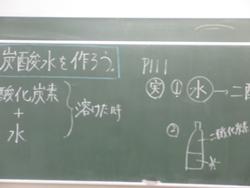 炭酸水を作ろう。
酸化炭素
+
水
溶けた時
P111
実 ① 水 → 二酸
②
二酸化炭素
水